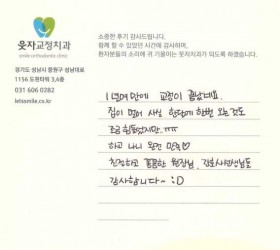 웃자교정치과
smile orthodontic clinic
경기도 성남시 중원구 성남대로
1156 도원타워 3,4층
031 606 0282
letssmile.co.kr
소중한 후기 감사드립니다.
함께 할 수 있었던 시간에 감사하며,
환자분들의 소리에 귀 기울이는 웃자치과가 되도록 하겠습니다.
1년여만에 교정이 끝났네요.
집이 멀어서 사실 한달에 한번 오는 것도
조금 힘들었지만..ㅠㅠ
하고 나니 완전 만족♡
친절하고 꼼꼼한 원장님, 간호사선생님들
감사합니다~ :D